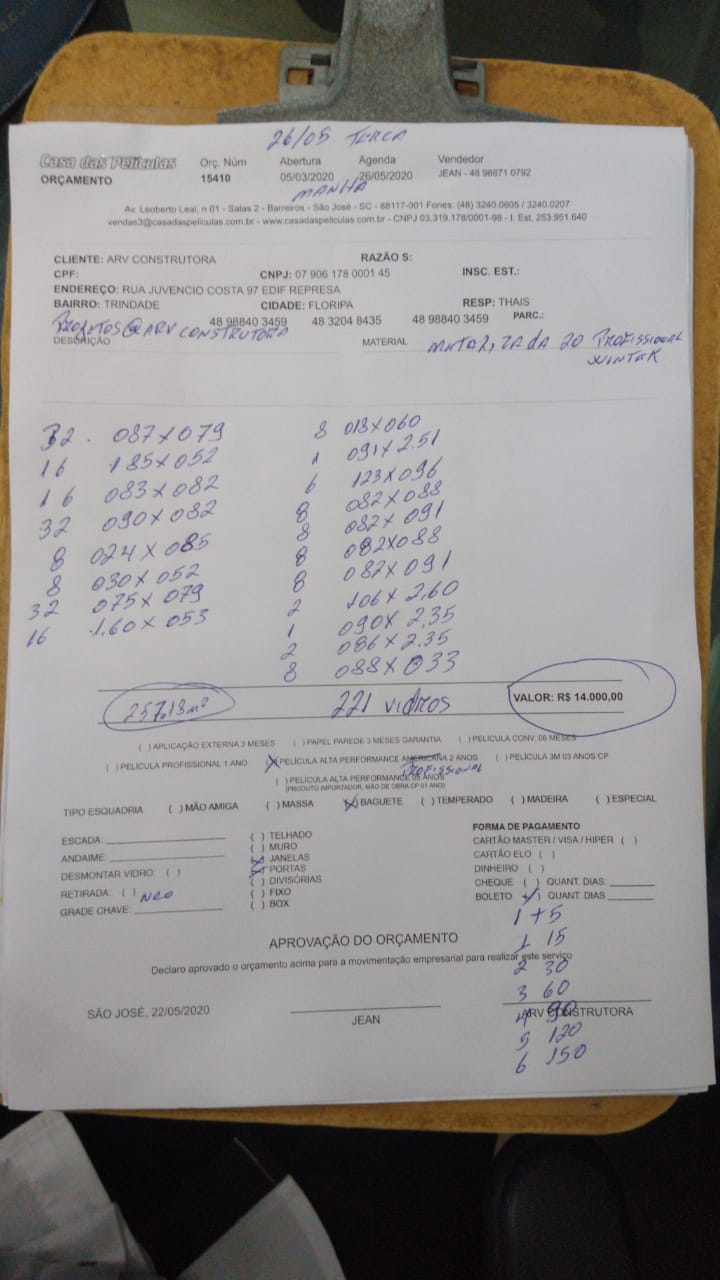 26/05 TERCA
Casa das Películas Orç. Núm Abertura Agenda Vendedor
ORÇAMENTO 15410 05/03/2020 26/05/2020 JEAN - 48 98871 0792
MANHA
Av. Leoberto Leal, n 01 - Salas 2 - Barreiros - São José - SC - 88117-001 Fones: (48) 3240.0605 / 3240.0207
vendas3@casadaspeliculas.com.br - www.casadaspeliculas.com.br - CNPJ 03.319.178/0001-98 - I. Est. 253.951.640
CLIENTE: ARV CONSTRUTORA RAZÃO S:
CPF: CNPJ: 07 906 178 0001 45 INSC. EST.:
ENDEREÇO: RUA JUVENCIO COSTA 97 EDIF REPRESA
BAIRRO: TRINDADE CIDADE: FLORIPA RESP: THAIS
48 98840 3459 48 3204 8435 48 98840 3459 PARC.:
PROJETOS@ARV CONSTRUTORA
DESCRIÇÃO MATERIAL METALIZADA 20 PROFISSIONAL
WINTEK
32. 087 X 079 8 018 X 060
16 185 X 052 1 091 X 2.51
16 083 X 082 6 123 X 096
32 090 X 082 8 082 X 088
8 024 X 085 8 082 X 091
8 030 X 052 8 082 X 088
32 075 X 079 8 082 X 091
16 1.60 X 053 2 106 X 2,60
1 090 X 2,35
2 086 X 2.35
8 088 X 033
257,18 m² 221 vidros VALOR: R$ 14.000,00
( ) APLICAÇÃO EXTERNA 3 MESES ( ) PAPEL PAREDE 3 MESES GARANTIA ( ) PELÍCULA CONV. 06 MESES
( ) PELÍCULA PROFISSIONAL 1 ANO (X) PELÍCULA ALTA PERFORMANCE AMERICANA 2 ANOS ( ) PELÍCULA 3M 03 ANOS CP
PROFISSIONAL
( ) PELÍCULA ALTA PERFORMANCE 05 ANOS
(PRODUTO IMPORTADOR, MÃO DE OBRA CP 01 ANO)
TIPO ESQUADRIA ( ) MÃO AMIGA ( ) MASSA (X) BAGUETE ( ) TEMPERADO ( ) MADEIRA ( ) ESPECIAL
ESCADA: ( ) TELHADO FORMA DE PAGAMENTO
( ) MURO CARTÃO MASTER / VISA / HIPER ( )
ANDAIME: (X) JANELAS CARTÃO ELO ( )
DESMONTAR VIDRO: ( ) (X) PORTAS DINHEIRO ( )
( ) DIVISÓRIAS CHEQUE ( ) QUANT. DIAS:
RETIRADA: ( ) NÃO ( ) FIXO BOLETO (X) QUANT. DIAS
GRADE CHAVE: ( ) BOX
1 + 5
APROVAÇÃO DO ORÇAMENTO 1 15
Declaro aprovado o orçamento acima para a movimentação empresarial para realizar este serviço
2 30
3 60
SÃO JOSÉ, 22/05/2020
JEAN ARV CONSTRUTORA
4 90
5 120
6 150